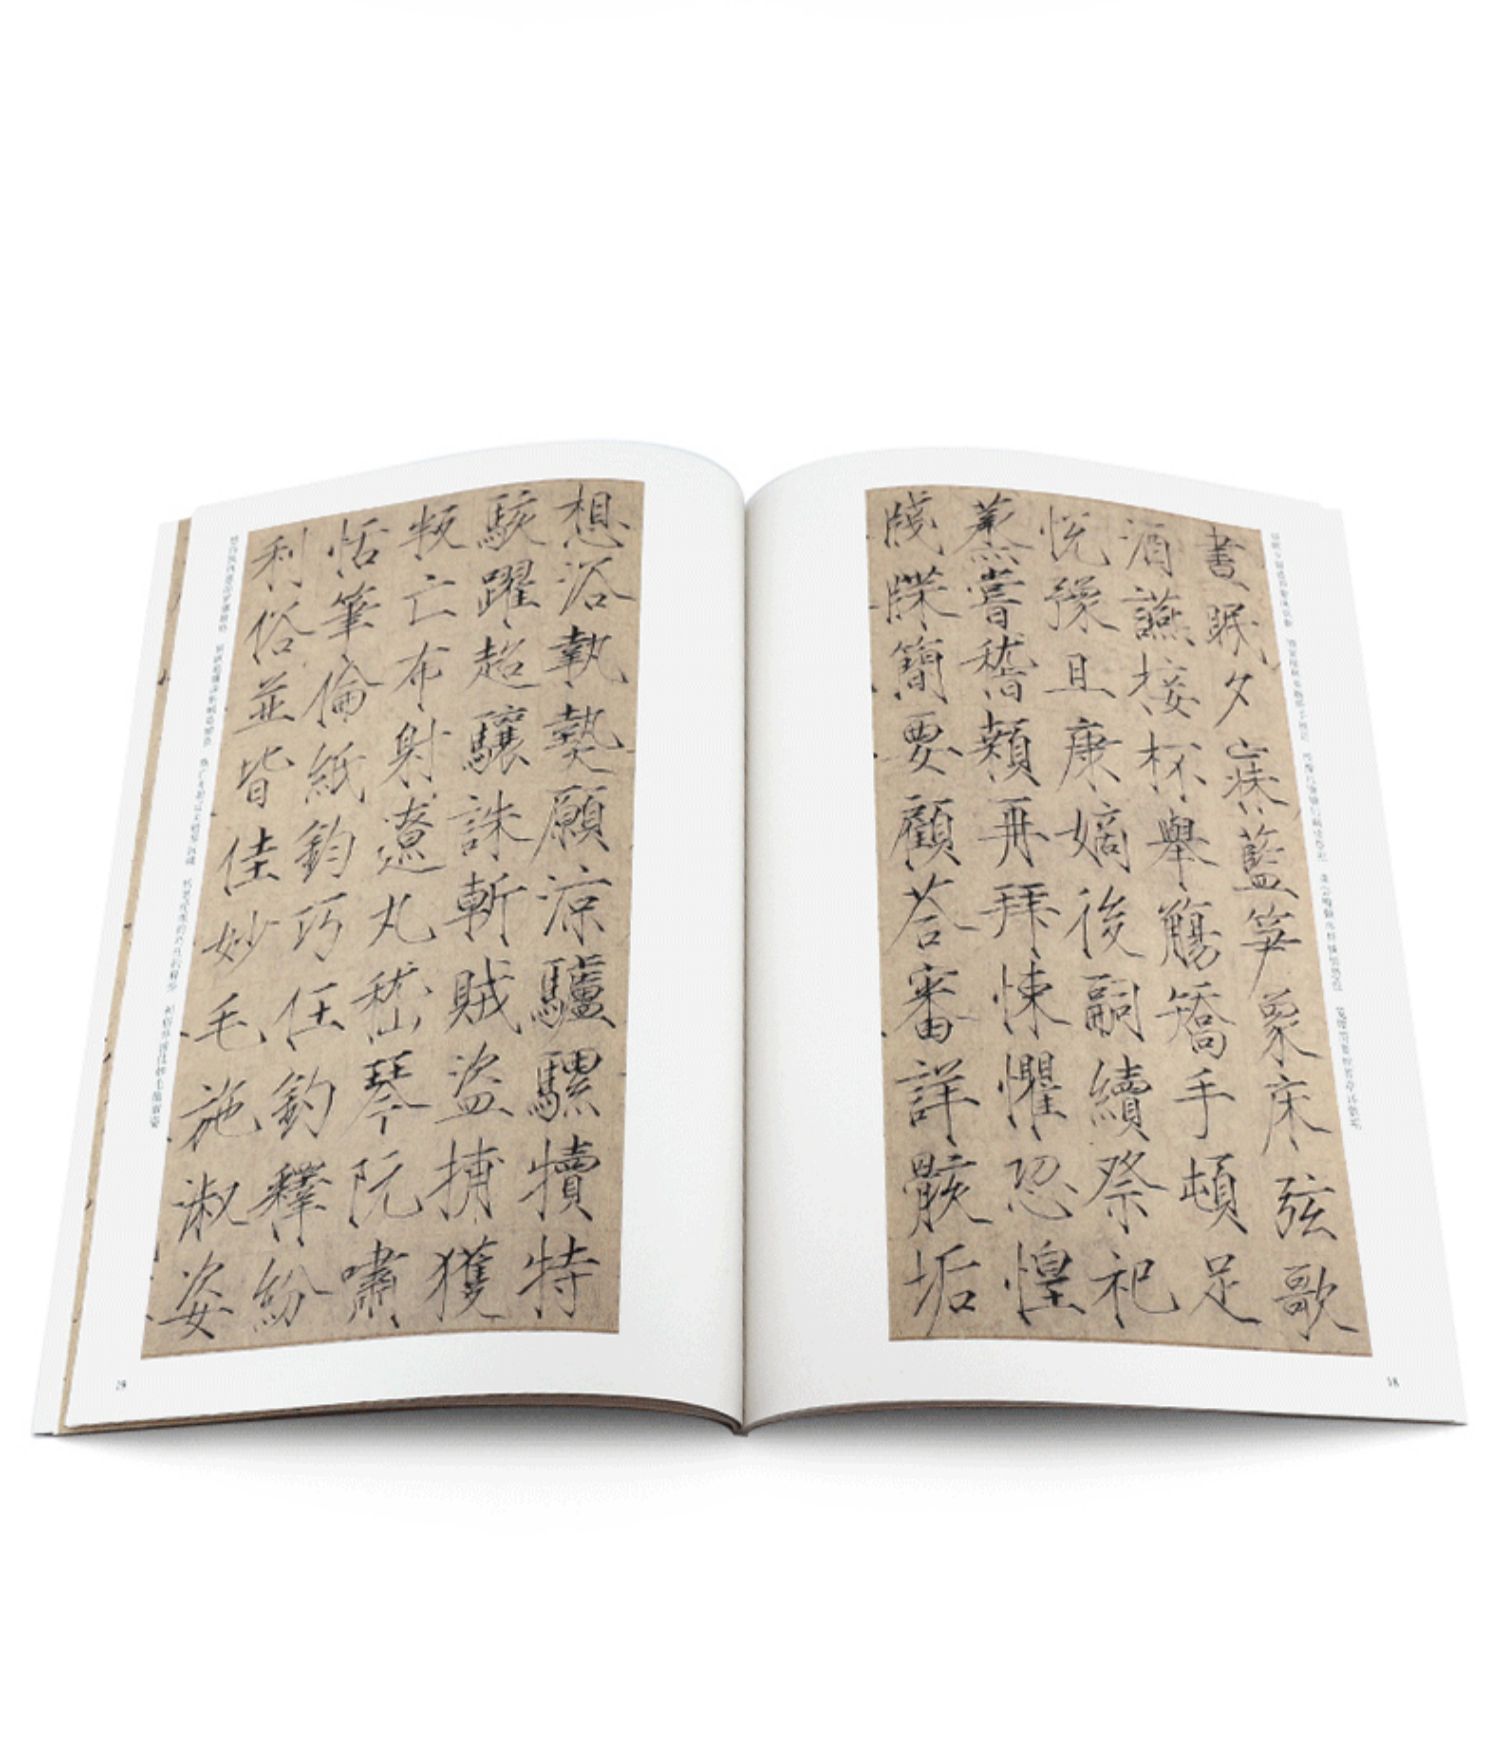 晝眠夕寐藍笋象床弦歌
酒讌接杯舉觴矯手頓足
悅豫且康嫡後嗣續祭祀
蒸嘗稽顙再拜悚懼恐惶
牋牒簡要顧荅審詳骸垢
想浴執熱願涼驢騾犢特
駭躍超驤誅斬賊盜捕獲
叛亡布射遼丸嵇琴阮嘯
恬筆倫紙鈞巧任釣釋紛
利俗並皆佳妙毛施淑姿